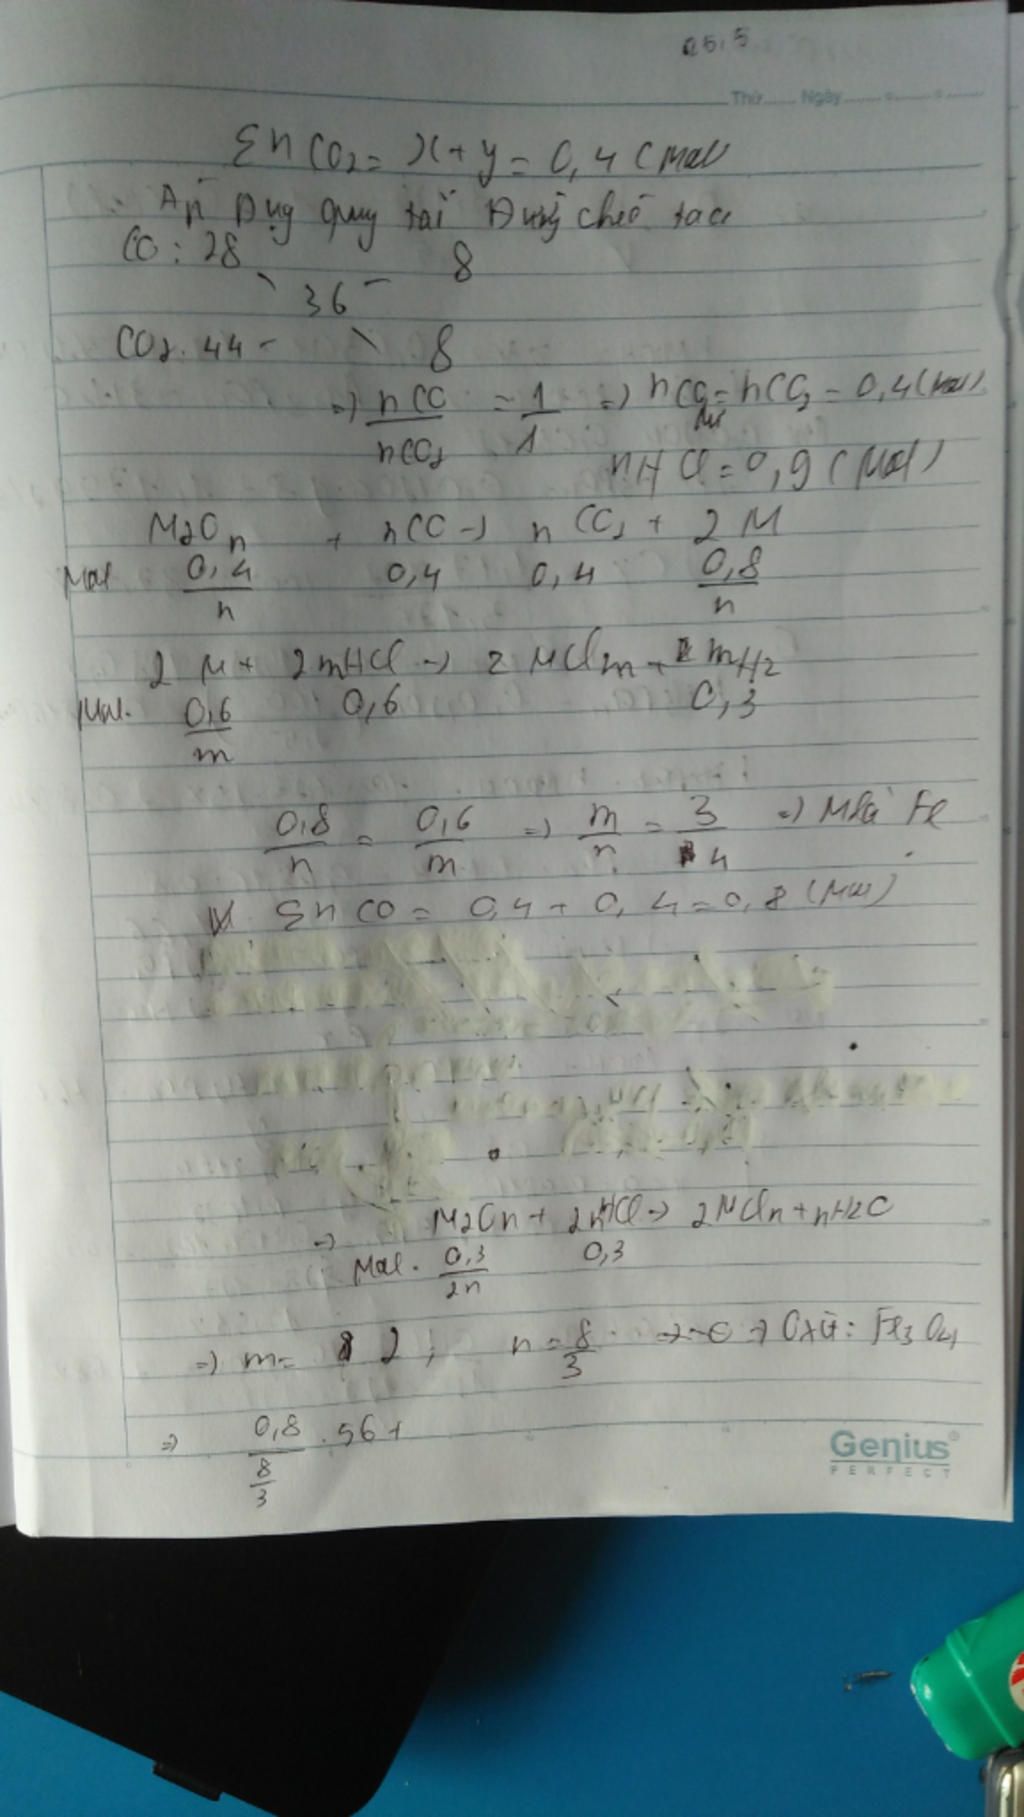 25,5
Thứ Ngày
Σn CO2 = x + y = 0,4 (mol)
Áp Dụng quy tắc Đường chéo ta có
CO : 28 8
36
CO2 . 44 8
=> nCO / nCO2 = 1 / 1 => nCO dư = nCO2 = 0,4 (mol)
nHCl = 0,9 (mol)
M2On + nCO -> nCO2 + 2M
Mol 0,4/n 0,4 0,4 0,8/n
2M + 2mHCl -> 2MClm + mH2
Mol. 0,6/m 0,6 0,3
0,8/n = 0,6/m => m/n = 3/4 => M là Fe
Σn CO = 0,4 + 0,4 = 0,8 (mol)
=> M2On + 2nHCl -> 2MCln + nH2O
Mol . 0,3/2n 0,3
=> m = 2 ; n = 8/3 => Oxit : Fe3O4
=> 0,8 / 8/3 . 56 +
Genius
PERFECT